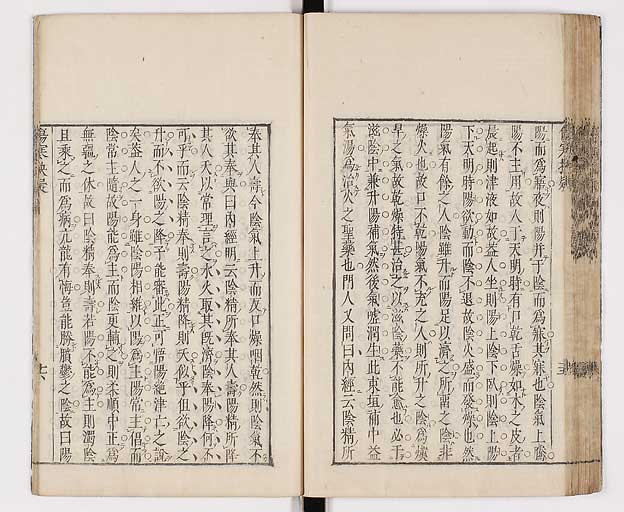 陽而爲寤夜則陽升于陰而爲寐其寐也陰氣上騰
陽不主用故人于天明時有口乾舌燥如木之皮者
晨起則津液如故葢人坐則陽上陰下臥則陰上陽
下天明時陽欲動而陰不退故陰火盛而發燥也然
陽氣有餘之人陰雖升而陽足以濟之所謂之陰非
燥火也故口不乾陽氣不充之人則所升之陰爲燥
旱之氣故乾燥特甚治之以滋陰藥不能愈也必于
滋陰中兼升陽補氣然後氣噓潤生此東垣補中益
氣湯爲治火之聖藥也門人又問曰內經云陰精所
奉其人壽今陰氣上升而反口燥咽乾然則陰氣不
欲其奉與曰內經明云陰精所奉其人壽陽精所降
其人夭以常理言之水火取其旣濟陰奉陽降何不
可乎而云陰精奉則壽陽精降則夭似乎但欲陰之
升而不欲陽之降予能審此正可悟陽絶津亡之說
矣葢人之一身雖陰陽相雜以陽爲主陽常主倡而
陰常主隨故陽能爲主而陰更輔之則柔順中正爲
無疆之休故曰陰精奉則壽若陽不能爲主則濁陰
且乘之而爲病亢龍有悔魚能勝臏鬱之陰故曰陽